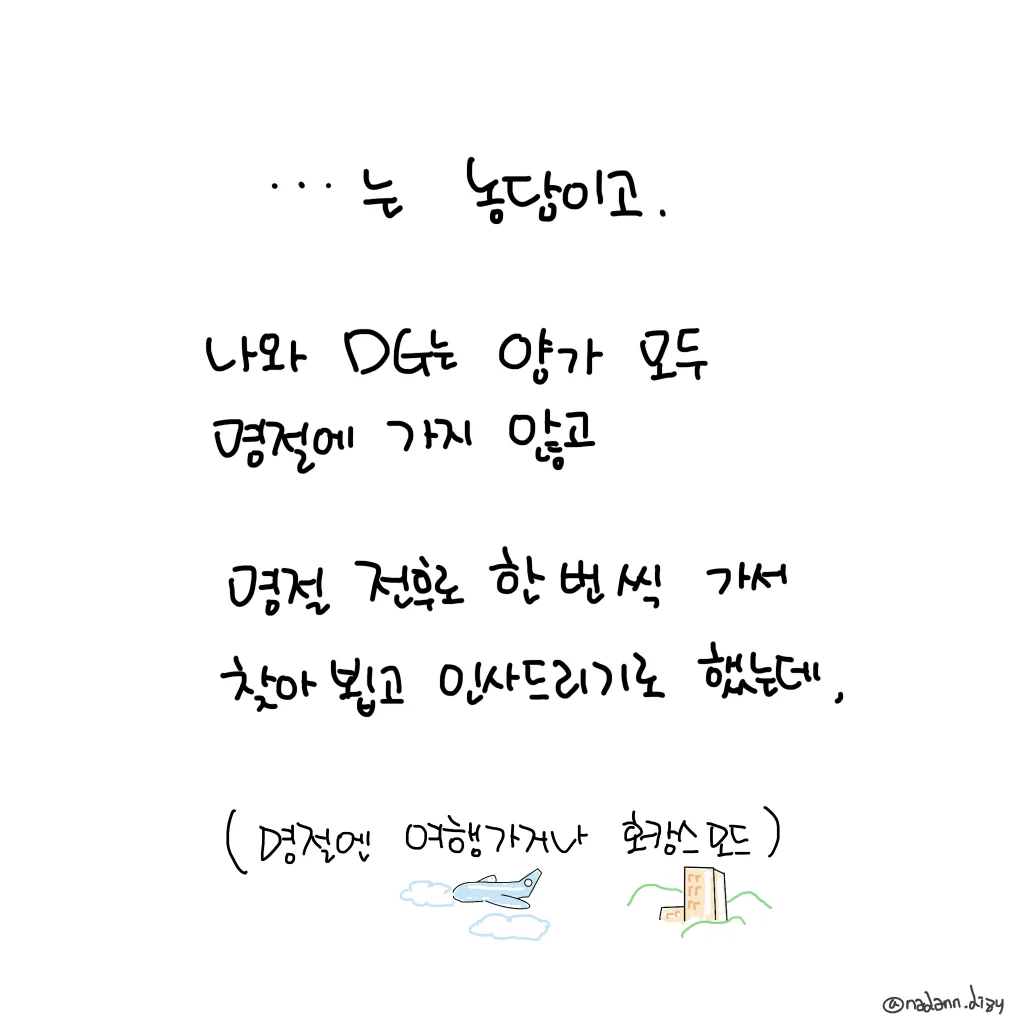 ...는 농담이고.
나와 DG는 양가 모두
명절에 가지 않고
명절 전후로 한 번씩 가서
찾아 뵙고 인사드리기로 했는데,
(명절엔 여행가거나 호캉스모드)
@nadann.dizy